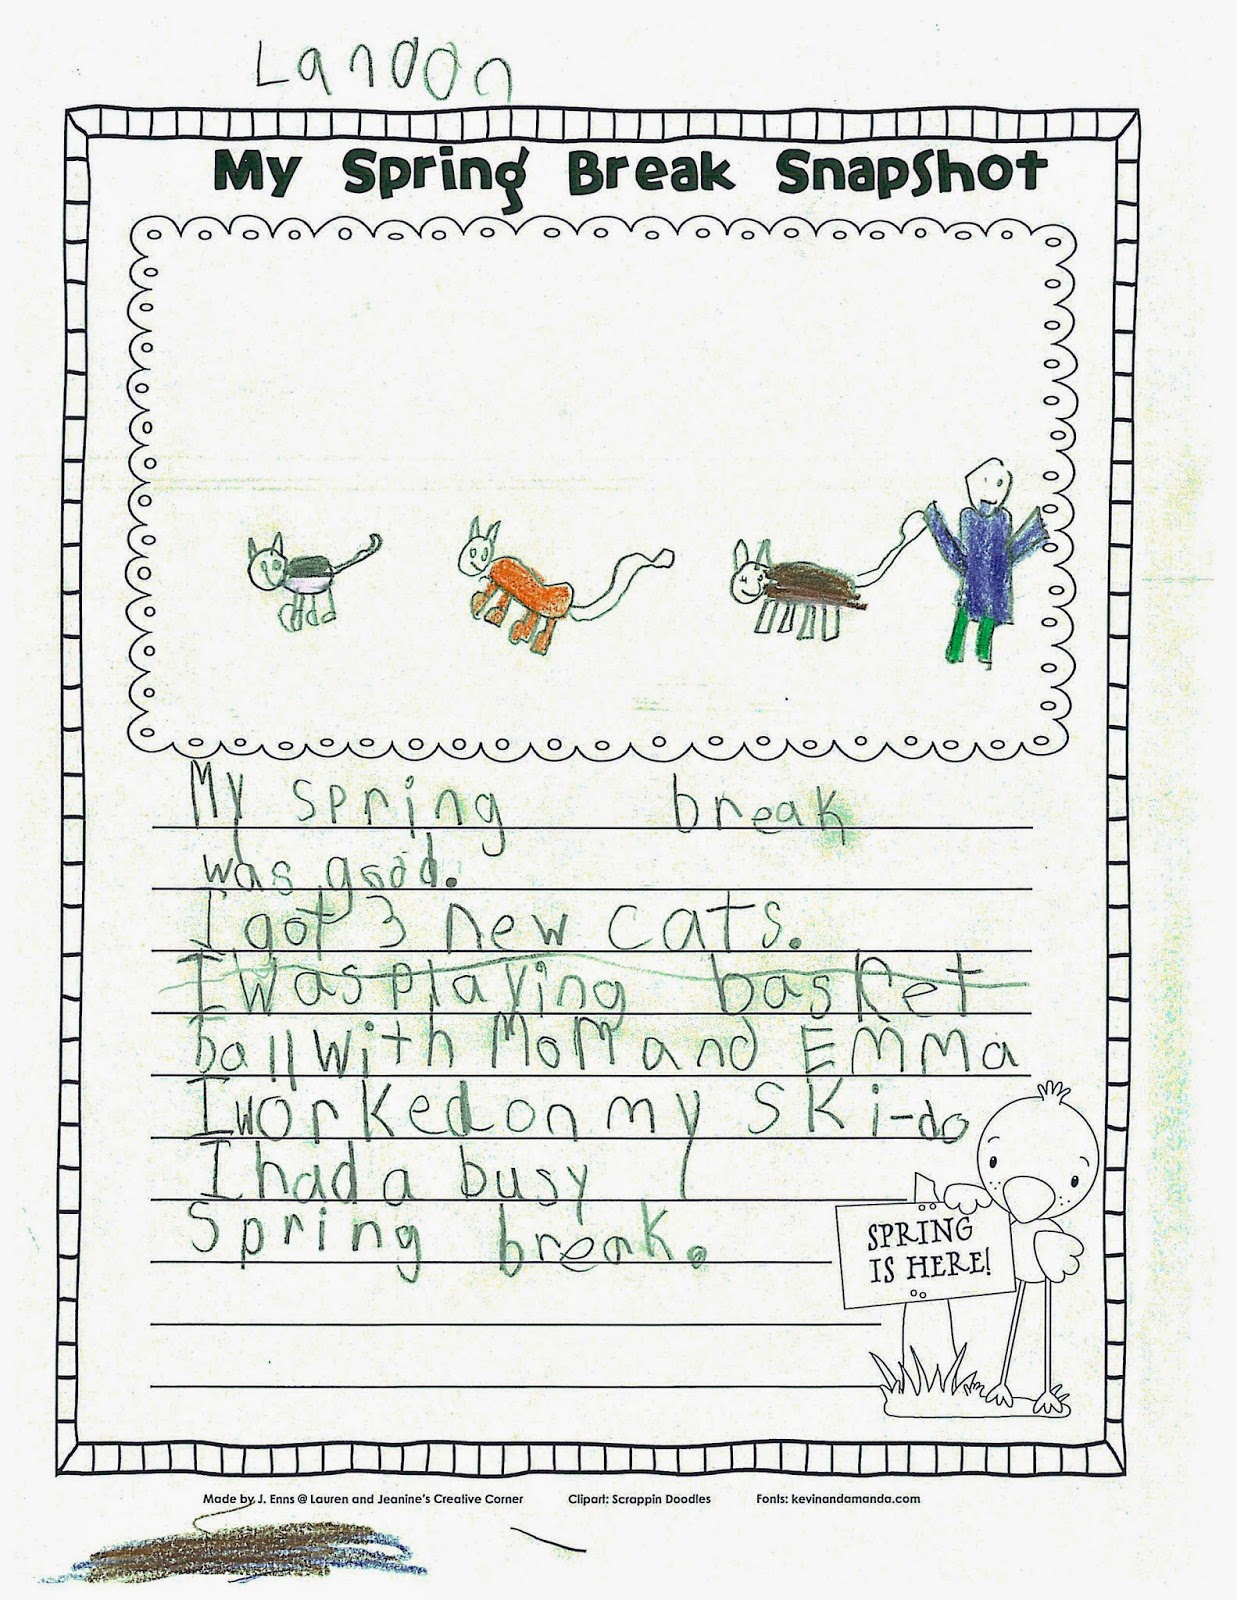 Landon
My Spring Break Snapshot
My spring break
was good.
I got 3 new cats.
I was playing basket
ball with MoM and EMMa
I worked on my SKi-do
I had a busy
Spring break.
SPRING
IS HERE!
Made by J. Enns @ Lauren and Jeanine's Creative Corner Clipart: Scrappin Doodles Fonts: kevinandamanda.com